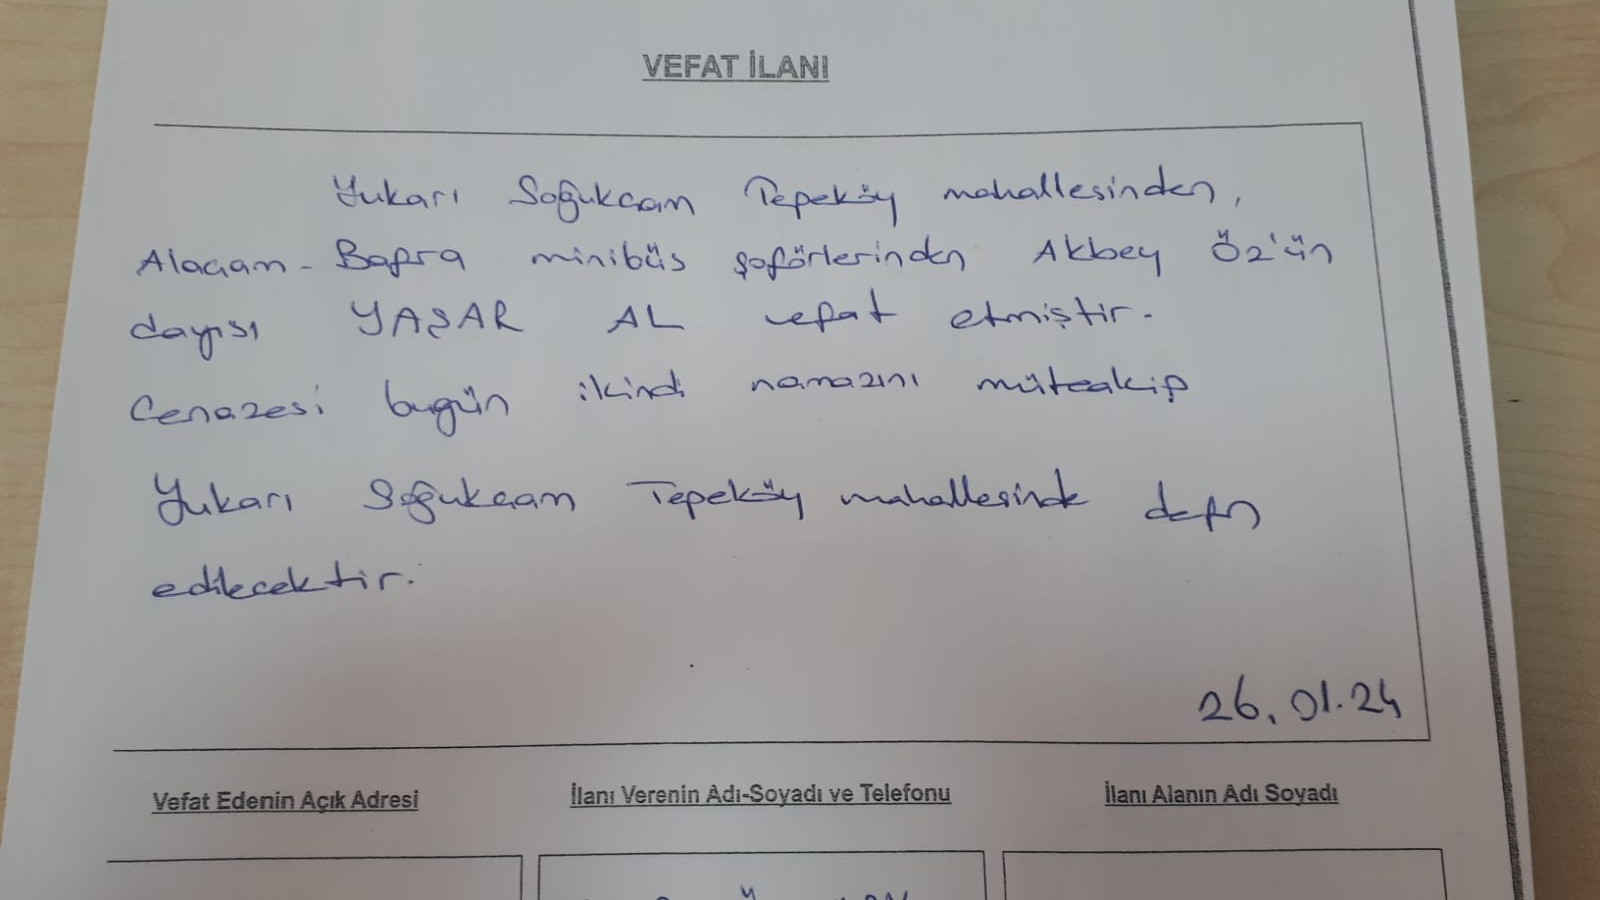 VEFAT İLANI
Yukarı Soğukcam Tepeköy mahallesinden,
Alaçam - Bafra minibüs şoförlerinden Akbey Öz'ün
dayısı YAŞAR AL vefat etmiştir.
Cenazesi bugün ikindi namazını müteakip
Yukarı Soğukcam Tepeköy mahallesinde defn
edilecektir.
26.01.24
Vefat Edenin Açık Adresi İlanı Verenin Adı-Soyadı ve Telefonu İlanı Alanın Adı Soyadı